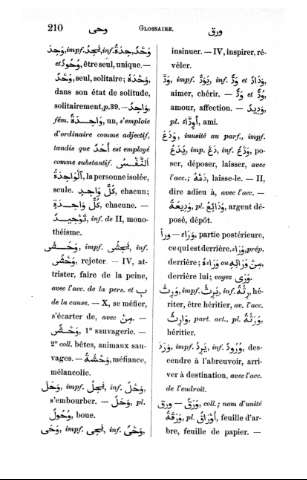 210 وحى GLOSSAIRE. ورق
وَحَدَ, impf. يَحِدُ, inf. حِدَةٌ, وَحْدٌ
et وُحُودٌ, être seul, unique. —
وَحْدٌ, seul, solitaire; وَحْدَهُ
dans son état de solitude,
solitairement, p. 39. — وَاحِدٌ,
fém. وَاحِدَةٌ, un, s'emploie
d'ordinaire comme adjectif,
tandis que أَحَدٌ est employé
comme substantif.
la personne isolée,
seule. كُلُّ وَاحِدٍ, chacun;
كُلُّ وَاحِدَةٍ, chacune. —
تَوْحِيدٌ, inf. de II, mono-
théisme.
impf. inf.
rejeter — IV, at-
trister, faire de la peine,
avec l'acc. de la pers. et ب
de la cause. — X, se méfier,
s'écarter de, avec مِنْ. —
1° sauvagerie. —
2° coll. bêtes, animaux sau-
vages. — وَحْشَةٌ, méfiance,
mélancolie.
وَحِلَ, impf. يَوْحَلُ, inf. وَحَلٌ,
s'embourber. — وَحْلٌ, pl.
وُحُولٌ, boue.
وَحَى, impf. يَحِي, inf. وَحْيٌ,
insinuer. — IV, inspirer, ré-
véler.
وَدَّ, impf. يَوَدُّ, inf. وُدٌّ et وَدَادٌ
aimer, chérir. — وُدٌّ et
amour, affection. — وَدِيدٌ,
pl. ami.
وَدَعَ, inusité au parf., impf.
يَدَعُ, imp. دَعْ, inf. وَدْعٌ, po-
ser, déposer, laisser, avec
l'acc.; دَعْهُ, laisse-le. — II,
dire adieu à, avec l'acc. —
وَدِيعَةٌ, pl. وَدَائِعُ, argent dé-
posé, dépôt.
وَرَاءٌ — ورأ, partie postérieure,
ce qui est derrière. وَرَاءَ, prép.
derrière; مِنْ وَرَائِهِ
derrière lui; voyez وَرَى.
وَرِثَ, impf. يَرِثُ, inf. hé-
riter, être héritier, av. l'acc.
— وَارِثٌ, part. act., pl. وَرَثَةٌ,
héritier.
وَرَدَ, impf. يَرِدُ, inf. وُرُودٌ, des-
cendre à l'abreuvoir, arri-
ver à destination, avec l'acc.
de l'endroit.
وَرَقٌ — ورق, coll.; nom d'unité
وَرَقَةٌ, pl. أَوْرَاقٌ, feuille d'ar-
bre, feuille de papier. —